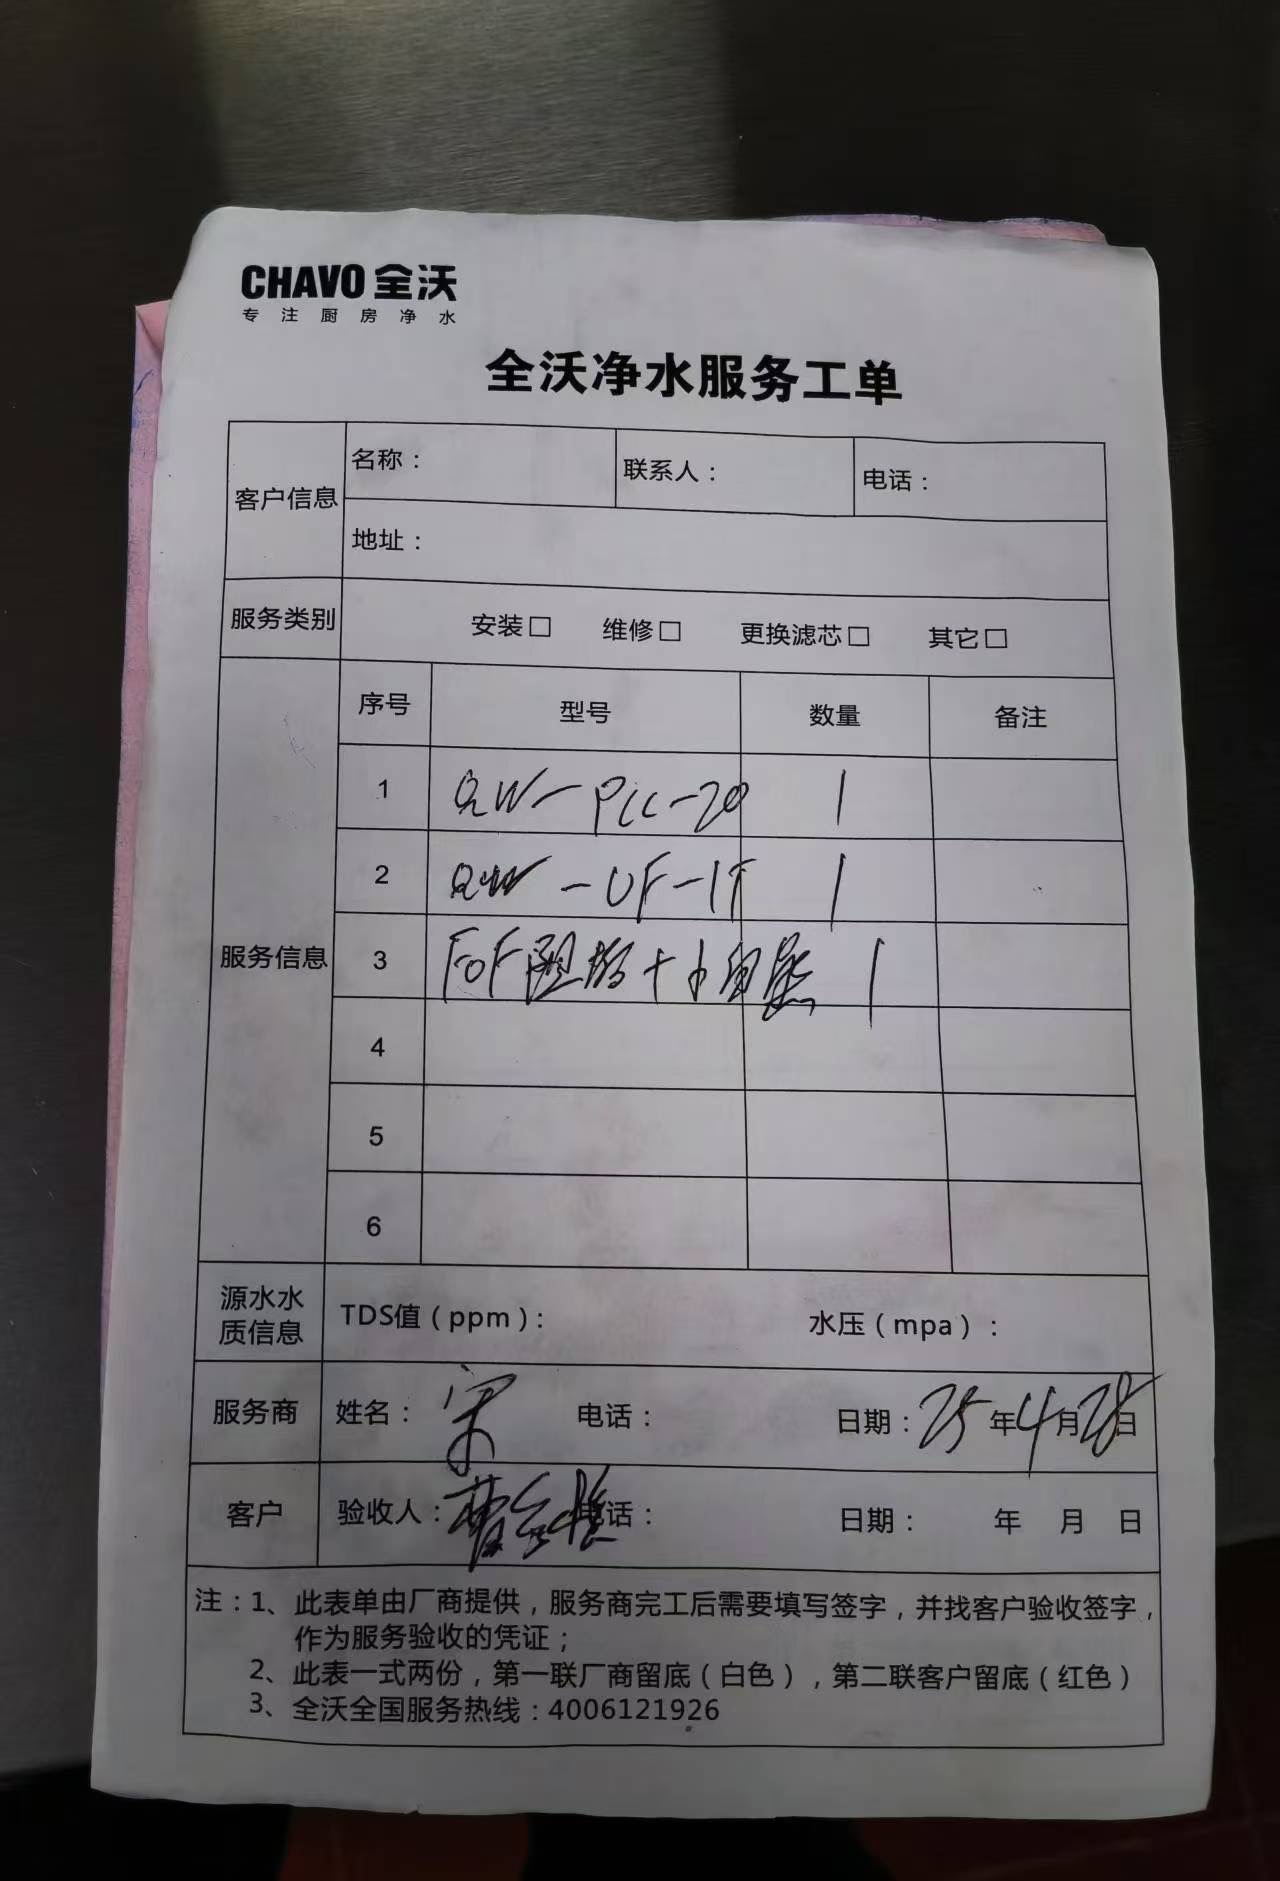 CHAVO 全沃
专注厨房净水
全沃净水服务工单
客户信息
名称：
联系人：
电话：
地址：
服务类别
安装□ 维修□ 更换滤芯□ 其它□
服务信息
序号 型号 数量 备注
1 QW-PCC-20 1
2 QW-UF-1T 1
3 FOF阻垢+ 1
4
5
6
源水水质信息
TDS值（ppm）： 水压（mpa）：
服务商 姓名：宋 电话： 日期：25年4月28日
客户 验收人：曹 电话： 日期： 年 月 日
注：1、此表单由厂商提供，服务商完工后需要填写签字，并找客户验收签字，
作为服务验收的凭证；
2、此表一式两份，第一联厂商留底（白色），第二联客户留底（红色）
3、全沃全国服务热线：4006121926